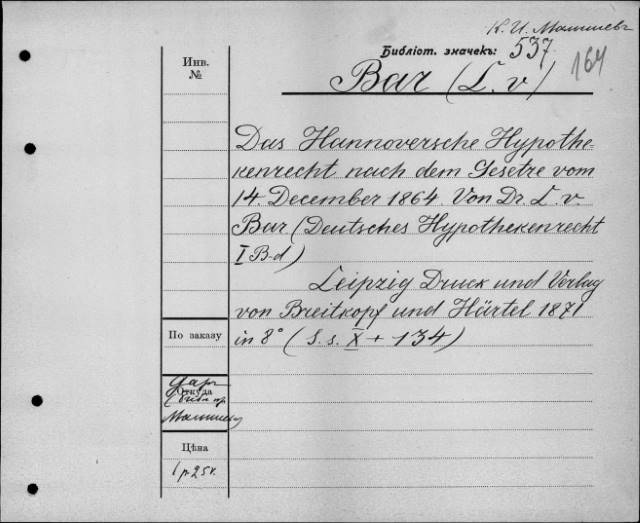 К. И. Малышевъ
Библіот. значекъ: 537.
164
Bar (L. v)
Инв.
№
Das Hannoversche Hypothe-
kenrecht nach dem Gesetze vom
14. December 1864. Von Dr. L. v.
Bar (Deutsches Hypothekenrecht
I B-d)
Leipzig Druck und Verlag
von Breitkopf und Härtel 1871
in 8° (S. s. X + 134)
По заказу
Откуда
Даръ
Малышева
Цѣна
1 р. 25 к.